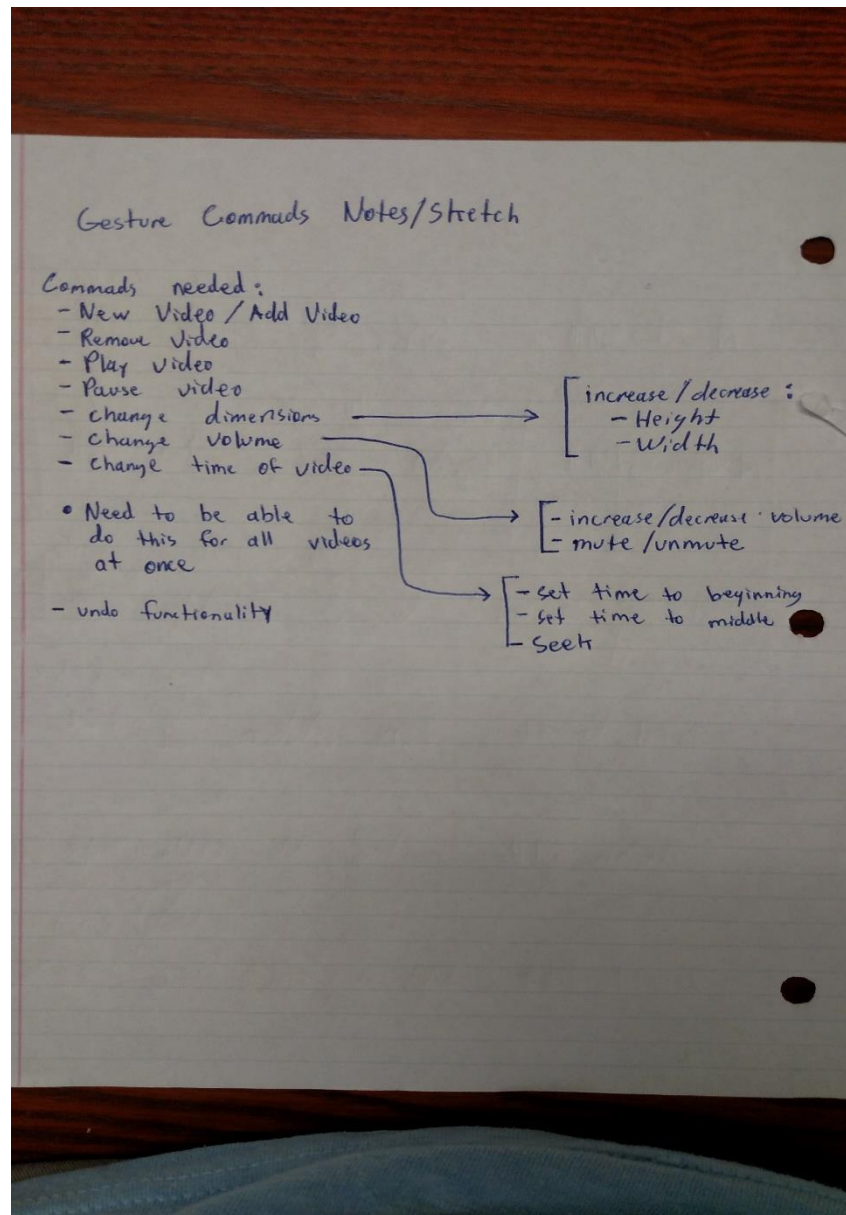 Gesture Commads Notes/Stretch
Commads needed:
- New Video / Add Video
- Remove Video
- Play video
- Pause video
- change dimensions
- change volume
- change time of video
• Need to be able to
do this for all videos
at once
- undo functionality
increase/decrease:
- Height
- Width
- increase/decrease volume
- mute/unmute
- set time to beginning
- set time to middle
- Seek